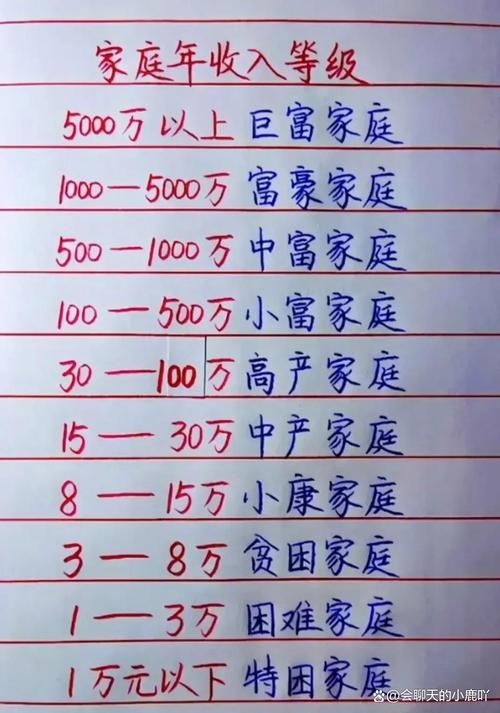 家庭年收入等级
5000万以上 巨富家庭
1000—5000万 富豪家庭
500—1000万 中富家庭
100—500万 小富家庭
30—100万 高产家庭
15—30万 中产家庭
8—15万 小康家庭
3—8万 贫困家庭
1—3万 困难家庭
1万元以下 特困家庭
@会聊天的小鹿吖